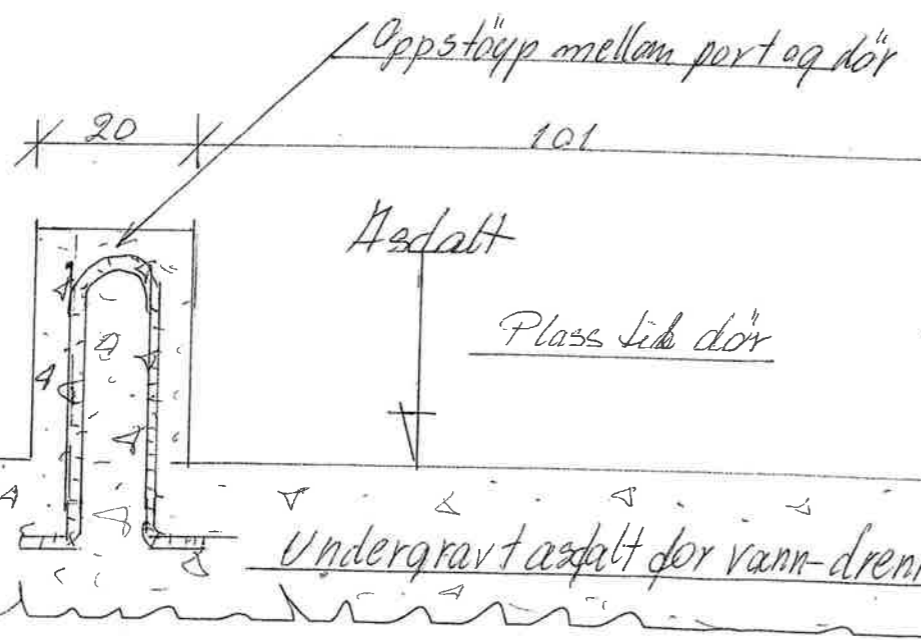 Oppstöyp mellam port og dör
20
101
Asfalt
Plass til dör
Undergravt asfalt for vann-dren